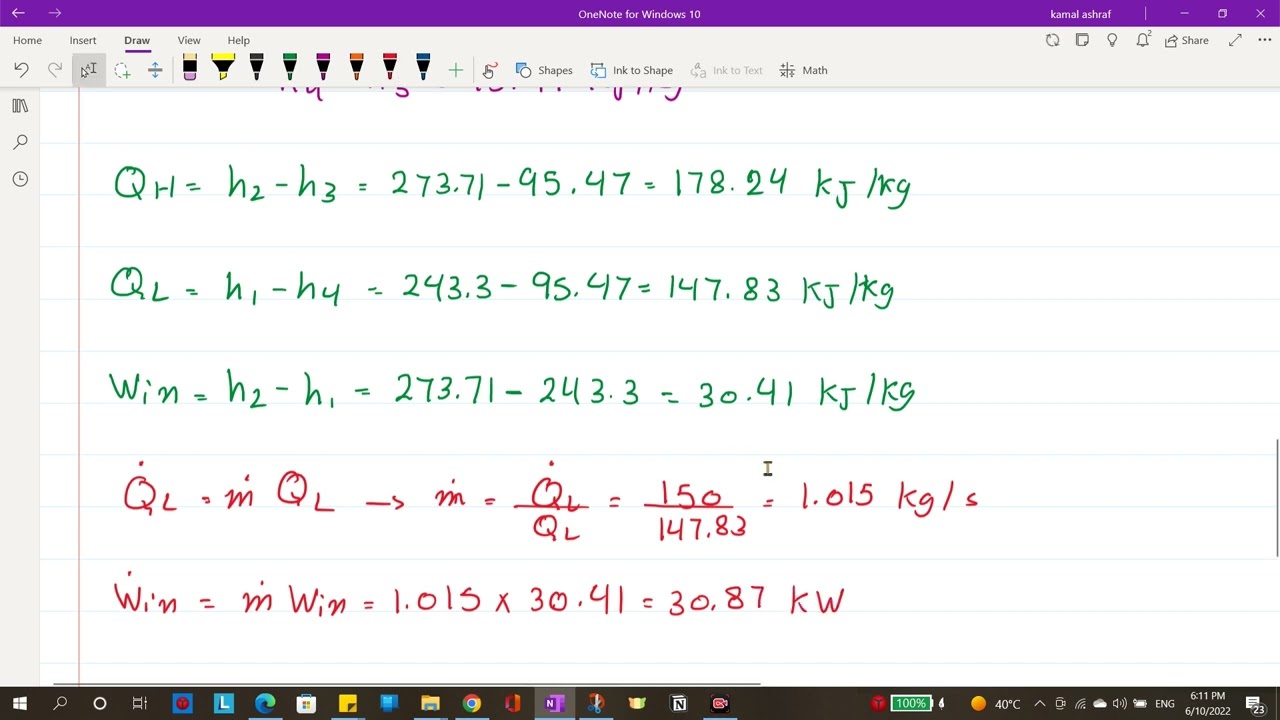 OneNote for Windows 10
kamal ashraf
Home Insert Draw View Help
2
Share
Shapes Ink to Shape Ink to Text Math
QH = h2 - h3 = 273.71 - 95.47 = 178.24 kJ/kg
QL = h1 - h4 = 243.3 - 95.47 = 147.83 kJ/kg
Win = h2 - h1 = 273.71 - 243.3 = 30.41 kJ/kg
Q̇L = ṁ QL → ṁ = Q̇L / QL = 150 / 147.83 = 1.015 kg/s
Ẇin = ṁ Win = 1.015 x 30.41 = 30.87 kW
100% 40°C ENG 6:11 PM
6/10/2022
23